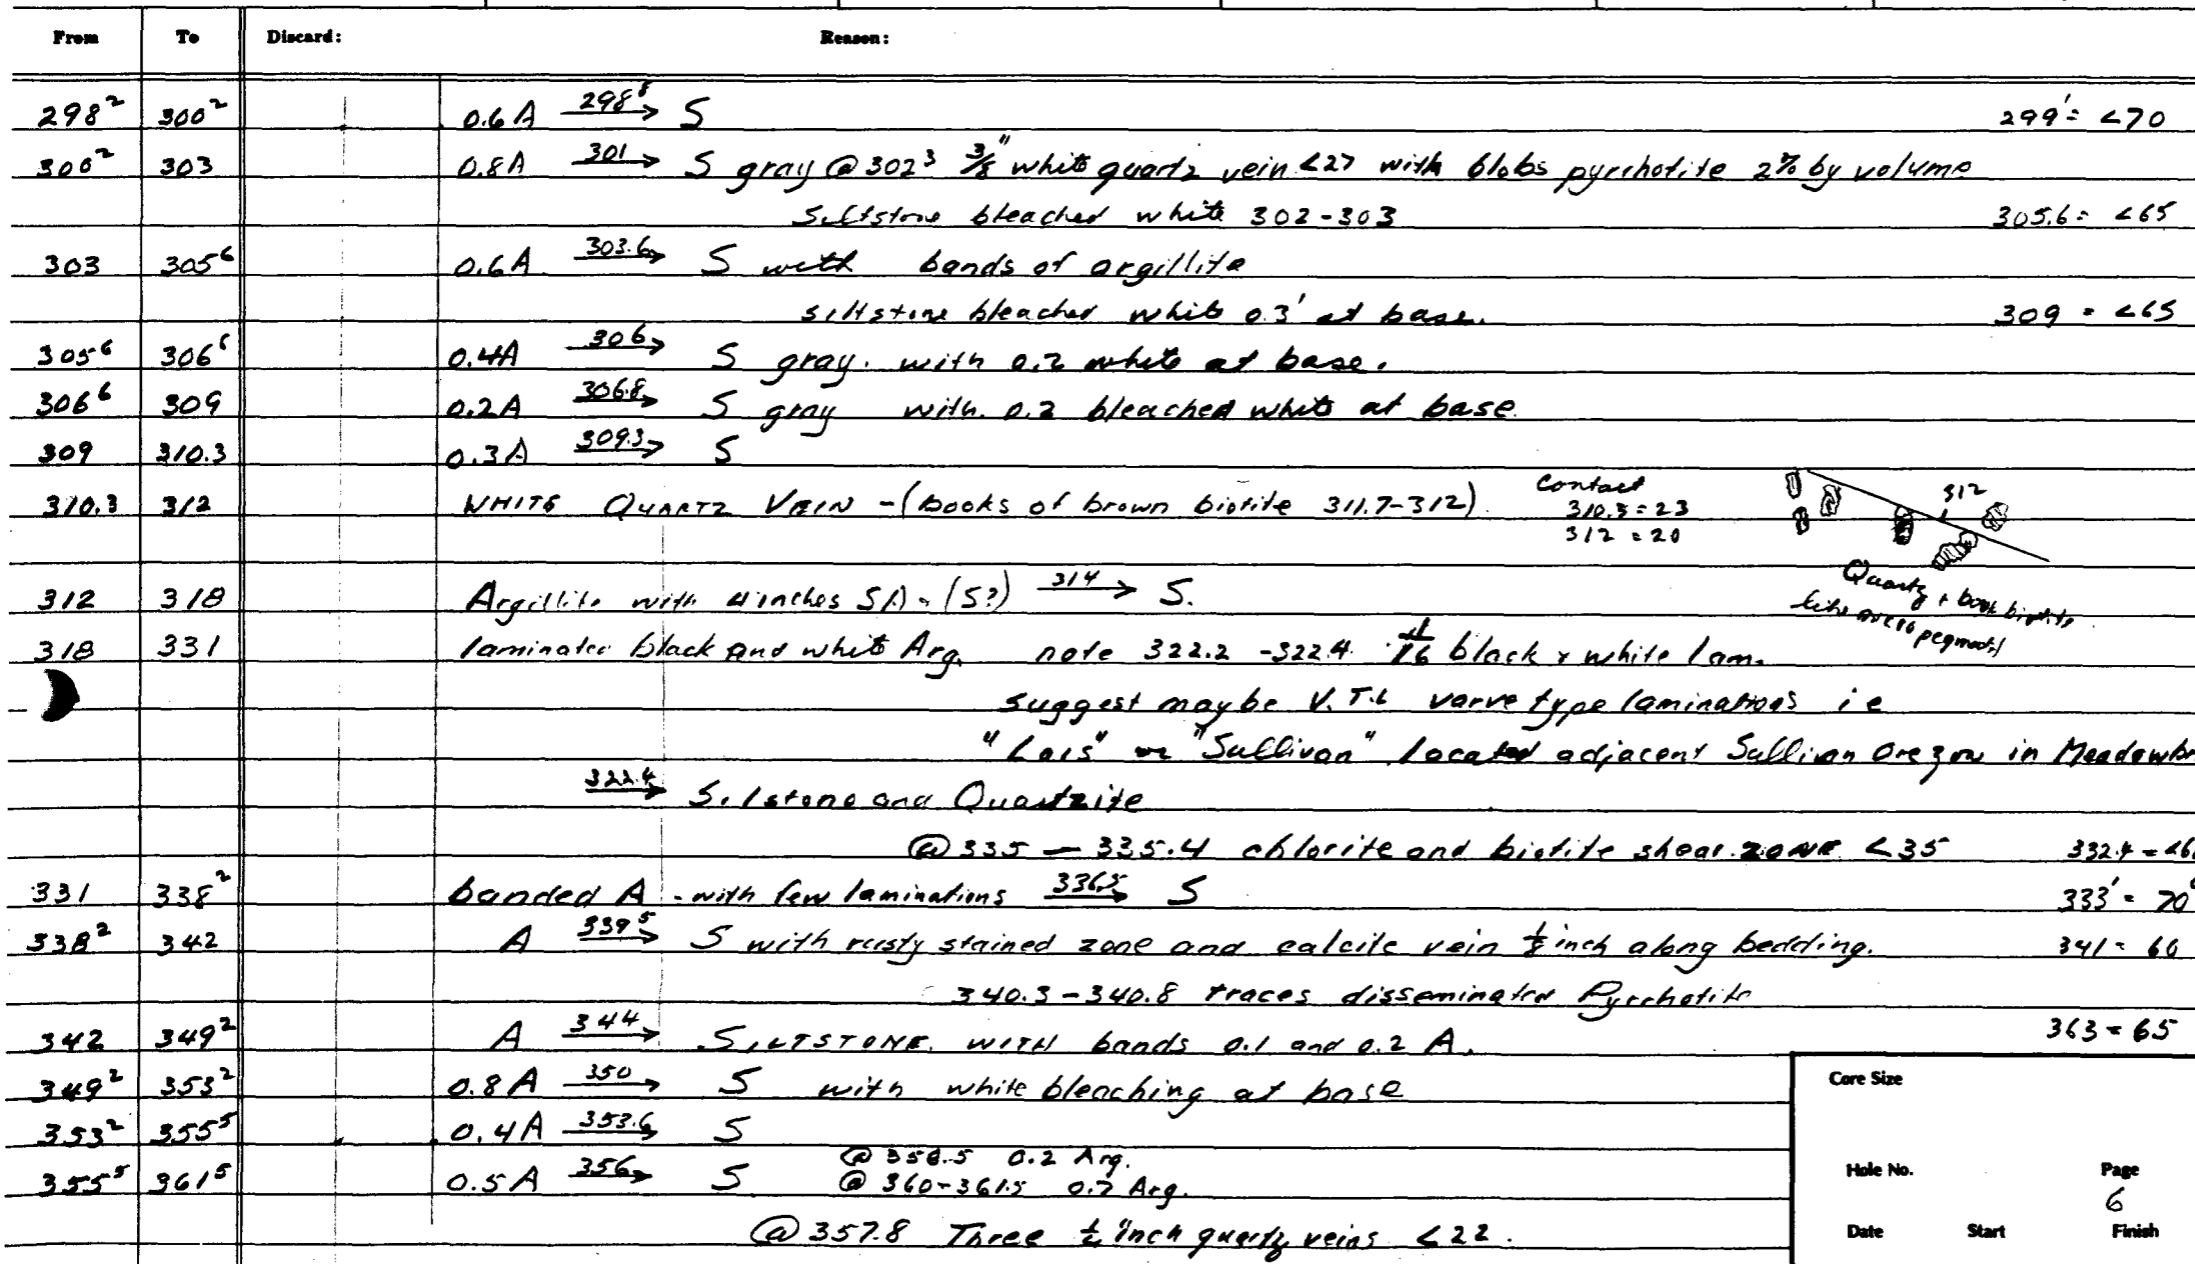 From To Discard: Reason:
298² 300² 0.6A 298⁸→ S 299' = <70
300² 303 0.8A 301→ S gray @ 302³ 3/8" white quartz vein <27 with blobs pyrrhotite 2% by volume
Siltstone bleached white 302-303 305.6 = <65
303 305⁶ 0.6A 303.6→ S with bands of argillite
siltstone bleached white 0.3' at base. 309 = <65
305⁶ 306⁶ 0.4A 306→ S gray. with 0.2 white at base.
306⁶ 309 0.2A 306.8→ S gray with 0.2 bleached white at base.
309 310.3 0.3A 309.3→ S
310.3 312 WHITE QUARTZ VEIN - (books of brown biotite 311.7-312) Contact
310.3 = 23
312 = 20
312
Quartz + book biotite
like
312 318 Argillite with 4 inches SA - (S?) 314→ S.
318 331 laminated black and white Arg. note 322.2 - 322.4 black & white lam.
suggest maybe V.T.L varve type laminations i e
"Lois" or "Sullivan" located adjacent Sullivan Orezone in
322.4→ Siltstone and Quartzite
@ 335 - 335.4 chlorite and biotite shear ZONE <35 332.4 =
331 338² banded A - with few laminations 336.5→ S 333' = 70°
338² 342 A 339⁵→ S with rusty stained zone and calcite vein 1/8 inch along bedding. 341 = 60
340.3-340.8 traces disseminated Pyrrhotite
342 349² A 344→ SILTSTONE. WITH bands 0.1 and 0.2 A. 363 = 65
349² 353² 0.8A 350→ S with white bleaching at base
353² 355⁵ 0.4A 353.6→ S
355⁵ 361⁵ 0.5A 356→ S @ 358.5 0.2 Arg.
@ 360-361.5 0.2 Arg.
@ 357.8 Three 1/2 inch quartz veins <22.
Core Size
Hole No. Page
6
Date Start Finish